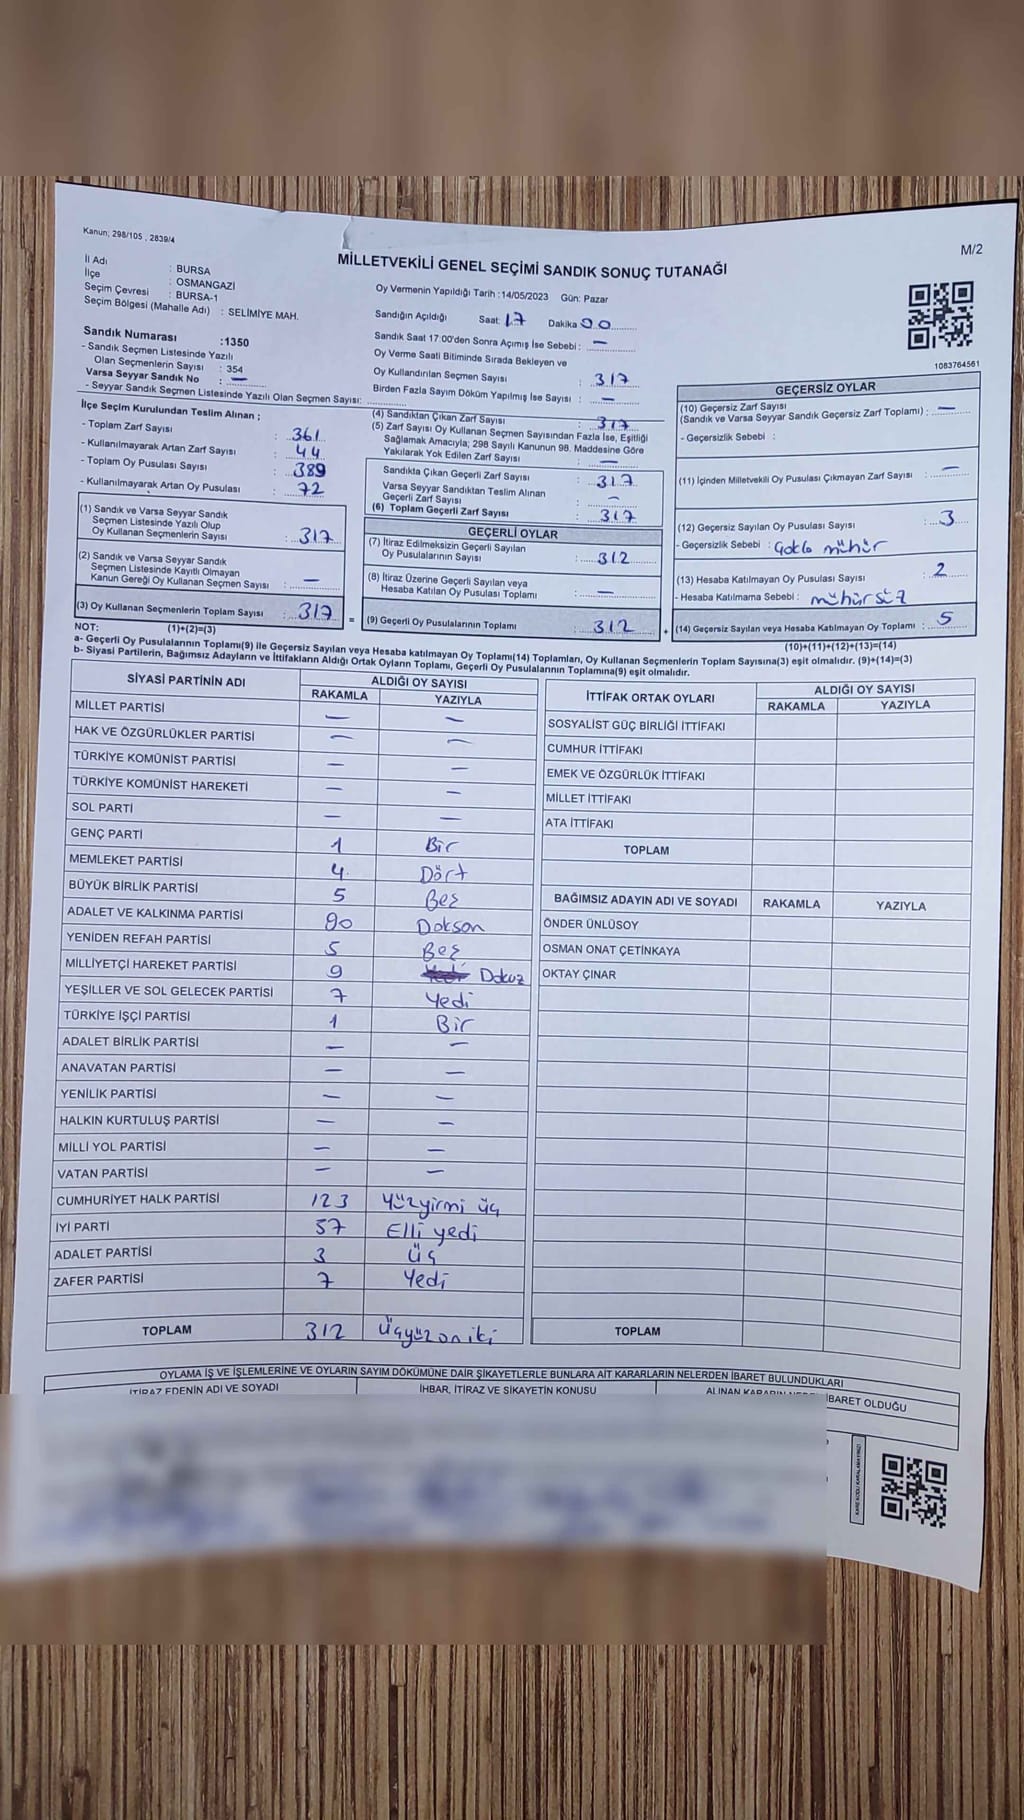 Kanun; 298/105 , 2839/4
M/2
MİLLETVEKİLİ GENEL SEÇİMİ SANDIK SONUÇ TUTANAĞI
İl Adı : BURSA
İlçe : OSMANGAZİ
Seçim Çevresi : BURSA-1
Seçim Bölgesi (Mahalle Adı) : SELİMİYE MAH.
Sandık Numarası :1350
- Sandık Seçmen Listesinde Yazılı
Olan Seçmenlerin Sayısı : 354
Varsa Seyyar Sandık No : —
- Seyyar Sandık Seçmen Listesinde Yazılı Olan Seçmen Sayısı:
Oy Vermenin Yapıldığı Tarih :14/05/2023 Gün: Pazar
Sandığın Açıldığı Saat: 17 Dakika 00
Sandık Saat 17:00'den Sonra Açımış İse Sebebi : —
Oy Verme Saati Bitiminde Sırada Bekleyen ve
Oy Kullandırılan Seçmen Sayısı : 317
Birden Fazla Sayım Döküm Yapılmış İse Sayısı : —
1083764561
İlçe Seçim Kurulundan Teslim Alınan ;
- Toplam Zarf Sayısı : 361
- Kullanılmayarak Artan Zarf Sayısı : 44
- Toplam Oy Pusulası Sayısı : 389
- Kullanılmayarak Artan Oy Pusulası : 72
(4) Sandıktan Çıkan Zarf Sayısı : 317
(5) Zarf Sayısı Oy Kullanan Seçmen Sayısından Fazla İse, Eşitliği
Sağlamak Amacıyla; 298 Sayılı Kanunun 98. Maddesine Göre
Yakılarak Yok Edilen Zarf Sayısı : —
Sandıkta Çıkan Geçerli Zarf Sayısı : 317
Varsa Seyyar Sandıktan Teslim Alınan
Geçerli Zarf Sayısı : —
(6) Toplam Geçerli Zarf Sayısı : 317
(1) Sandık ve Varsa Seyyar Sandık
Seçmen Listesinde Yazılı Olup
Oy Kullanan Seçmenlerin Sayısı : 317
(2) Sandık ve Varsa Seyyar Sandık
Seçmen Listesinde Kayıtlı Olmayan
Kanun Gereği Oy Kullanan Seçmen Sayısı : —
(3) Oy Kullanan Seçmenlerin Toplam Sayısı : 317
(1)+(2)=(3)
=
GEÇERLİ OYLAR
(7) İtiraz Edilmeksizin Geçerli Sayılan
Oy Pusulalarının Sayısı : 312
(8) İtiraz Üzerine Geçerli Sayılan veya
Hesaba Katılan Oy Pusulası Toplamı : —
(9) Geçerli Oy Pusulalarının Toplamı : 312
+
GEÇERSİZ OYLAR
(10) Geçersiz Zarf Sayısı
(Sandık ve Varsa Seyyar Sandık Geçersiz Zarf Toplamı) : —
- Geçersizlik Sebebi :
(11) İçinden Milletvekili Oy Pusulası Çıkmayan Zarf Sayısı : —
(12) Geçersiz Sayılan Oy Pusulası Sayısı : 3
- Geçersizlik Sebebi : Çokla mühür
(13) Hesaba Katılmayan Oy Pusulası Sayısı : 2
- Hesaba Katılmama Sebebi : mühürsüz
(14) Geçersiz Sayılan veya Hesaba Katılmayan Oy Toplamı : 5
(10)+(11)+(12)+(13)=(14)
NOT:
a- Geçerli Oy Pusulalarının Toplamı(9) ile Geçersiz Sayılan veya Hesaba katılmayan Oy Toplamı(14) Toplamları, Oy Kullanan Seçmenlerin Toplam Sayısına(3) eşit olmalıdır. (9)+(14)=(3)
b- Siyasi Partilerin, Bağımsız Adayların ve İttifakların Aldığı Ortak Oyların Toplamı, Geçerli Oy Pusulalarının Toplamına(9) eşit olmalıdır.
SİYASİ PARTİNİN ADI ALDIĞI OY SAYISI
RAKAMLA YAZIYLA
MİLLET PARTİSİ — —
HAK VE ÖZGÜRLÜKLER PARTİSİ — —
TÜRKİYE KOMÜNİST PARTİSİ — —
TÜRKİYE KOMÜNİST HAREKETİ — —
SOL PARTİ — —
GENÇ PARTİ 1 Bir
MEMLEKET PARTİSİ 4 Dört
BÜYÜK BİRLİK PARTİSİ 5 Beş
ADALET VE KALKINMA PARTİSİ 90 Doksan
YENİDEN REFAH PARTİSİ 5 Beş
MİLLİYETÇİ HAREKET PARTİSİ 9 Dokuz
YEŞİLLER VE SOL GELECEK PARTİSİ 7 Yedi
TÜRKİYE İŞÇİ PARTİSİ 1 Bir
ADALET BİRLİK PARTİSİ — —
ANAVATAN PARTİSİ — —
YENİLİK PARTİSİ — —
HALKIN KURTULUŞ PARTİSİ — —
MİLLİ YOL PARTİSİ — —
VATAN PARTİSİ — —
CUMHURİYET HALK PARTİSİ 123 Yüzyirmi üç
İYİ PARTİ 57 Elli yedi
ADALET PARTİSİ 3 Üç
ZAFER PARTİSİ 7 Yedi
TOPLAM 312 Üçyüzoniki
İTTİFAK ORTAK OYLARI ALDIĞI OY SAYISI
RAKAMLA YAZIYLA
SOSYALİST GÜÇ BİRLİĞİ İTTİFAKI
CUMHUR İTTİFAKI
EMEK VE ÖZGÜRLÜK İTTİFAKI
MİLLET İTTİFAKI
ATA İTTİFAKI
TOPLAM
BAĞIMSIZ ADAYIN ADI VE SOYADI RAKAMLA YAZIYLA
ÖNDER ÜNLÜSOY
OSMAN ONAT ÇETİNKAYA
OKTAY ÇINAR
TOPLAM
OYLAMA İŞ VE İŞLEMLERİNE VE OYLARIN SAYIM DÖKÜMÜNE DAİR ŞİKAYETLERLE BUNLARA AİT KARARLARIN NELERDEN İBARET BULUNDUKLARI
İTİRAZ EDENİN ADI VE SOYADI İHBAR, İTİRAZ VE ŞİKAYETİN KONUSU ALINAN KARARIN İBARET OLDUĞU